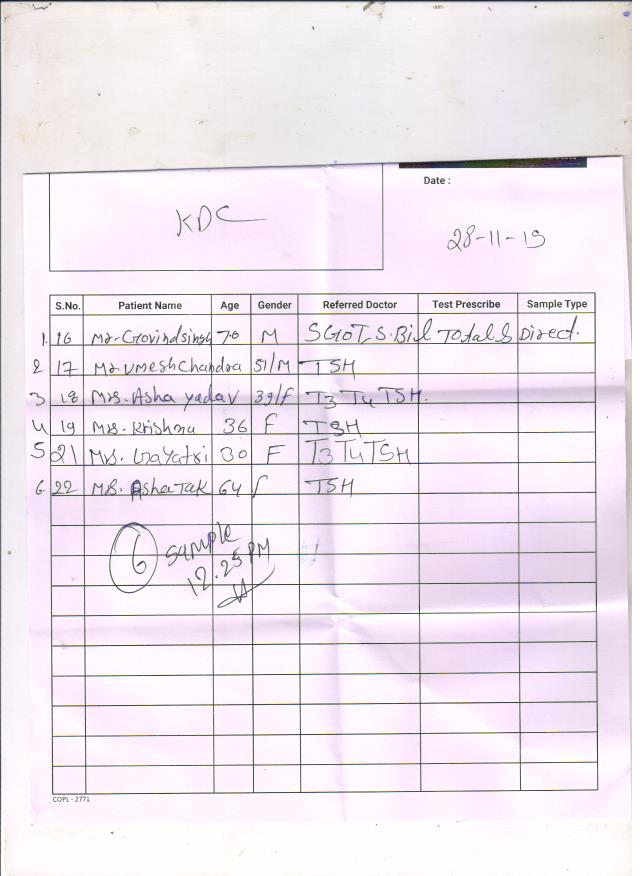 Date :
KDC
28-11-19
S.No. Patient Name Age Gender Referred Doctor Test Prescribe Sample Type
1. 16 Mr. Govindsingh 70 M SGOT S. Bil Total & Direct.
2 17 Mr. Umesh Chandra 51/M TSH
3 18 Mrs. Asha yadav 39/f T3 T4 TSH.
4 19 Mrs. Krishna 36 F TSH
5 21 Mrs. Gayatri 30 F T3 T4 TSH
6. 22 Mrs. Asha Tak 64 f TSH
6 Sample
12.25 PM
COPL - 2771